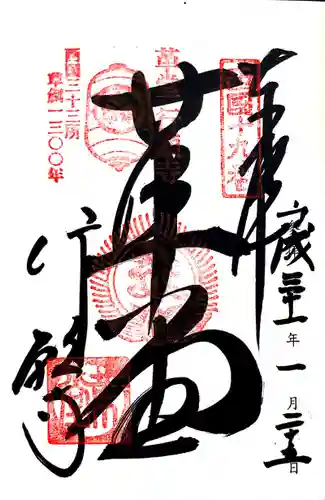 平成三十一年一月二十五日
奉拝
西國十九番
革堂
西国三十三所
草創一三〇〇年
行願寺